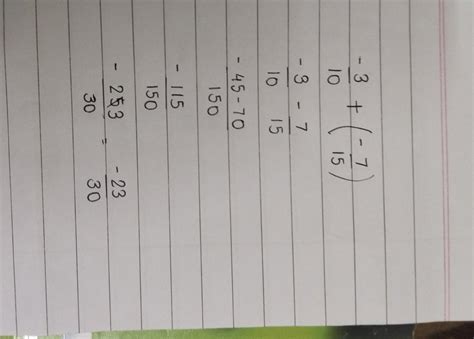 -3/10 + (-7/15)
-3/10 - 7/15
-45-70/150
-115/150
-23/30 = -23/30